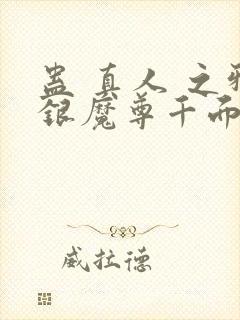 蛊真人之邪
银魔尊千而
威拉德